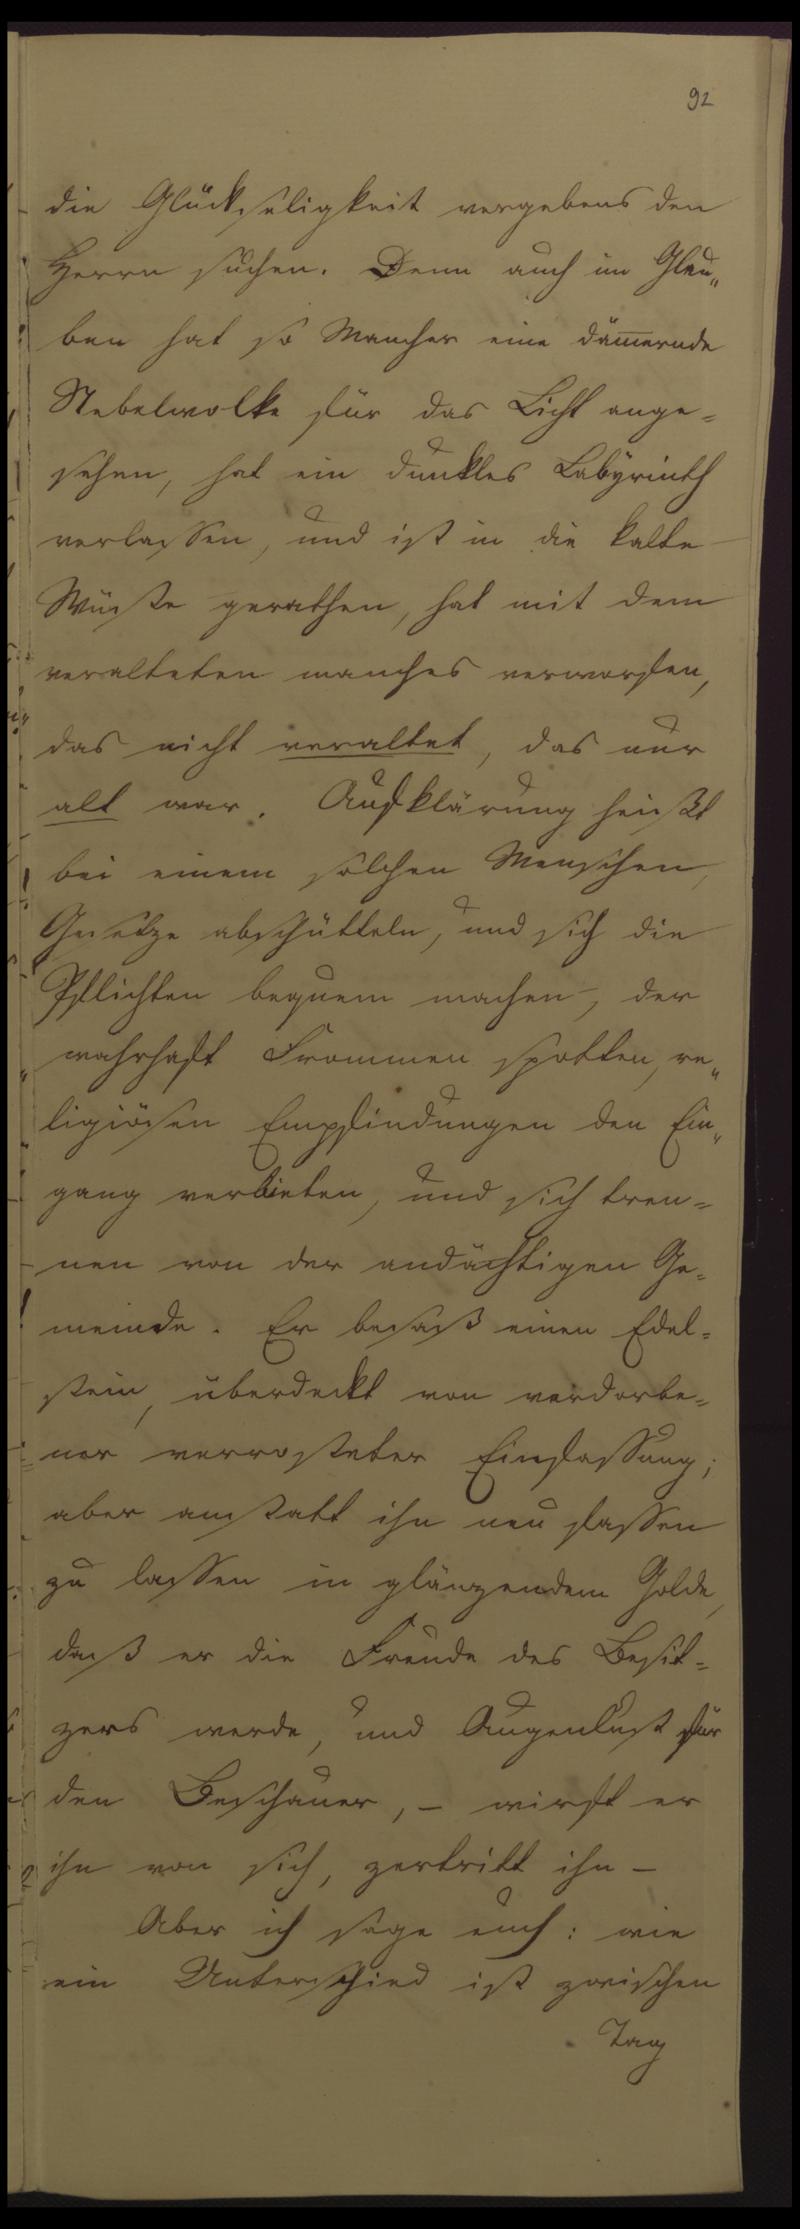 92
die Glückseligkeit vergebens den
Herrn suchen. Denn auch im Glau„
ben hat so Mancher eine däm̅ernde
Nebelwolke für das Licht ange=
sehen, hat ein dunkles Labÿrinth
verlassen, und ist in die kalte
Wüste gerathen, hat mit dem
veralteten manches verworfen,
das nicht veraltet, das nur
alt war. Aufklärung heißt
bei einem solchen Menschen,
Gesetze abschütteln, und sich die
Pflichten bequem machen, der
wahrhaft Frommen spotten, re„
ligiösen Empfindungen den Ein„
gang verbieten, und sich tren=
nen von der andächtigen Ge=
meinde. Er besaß einen Edel=
stein, überdeckt von verdorbe=
ner verrosteter Einfassung;
aber anstatt ihn neu fassen
zu lassen in glänzendem Golde,
daß er die Freude des Besit=
zers werde, und Augenlust für
den Beschauer, – wirft er
ihn von sich, zertritt ihn –
Aber ich sage euch: wie
ein Unterschied ist zwischen
Tag